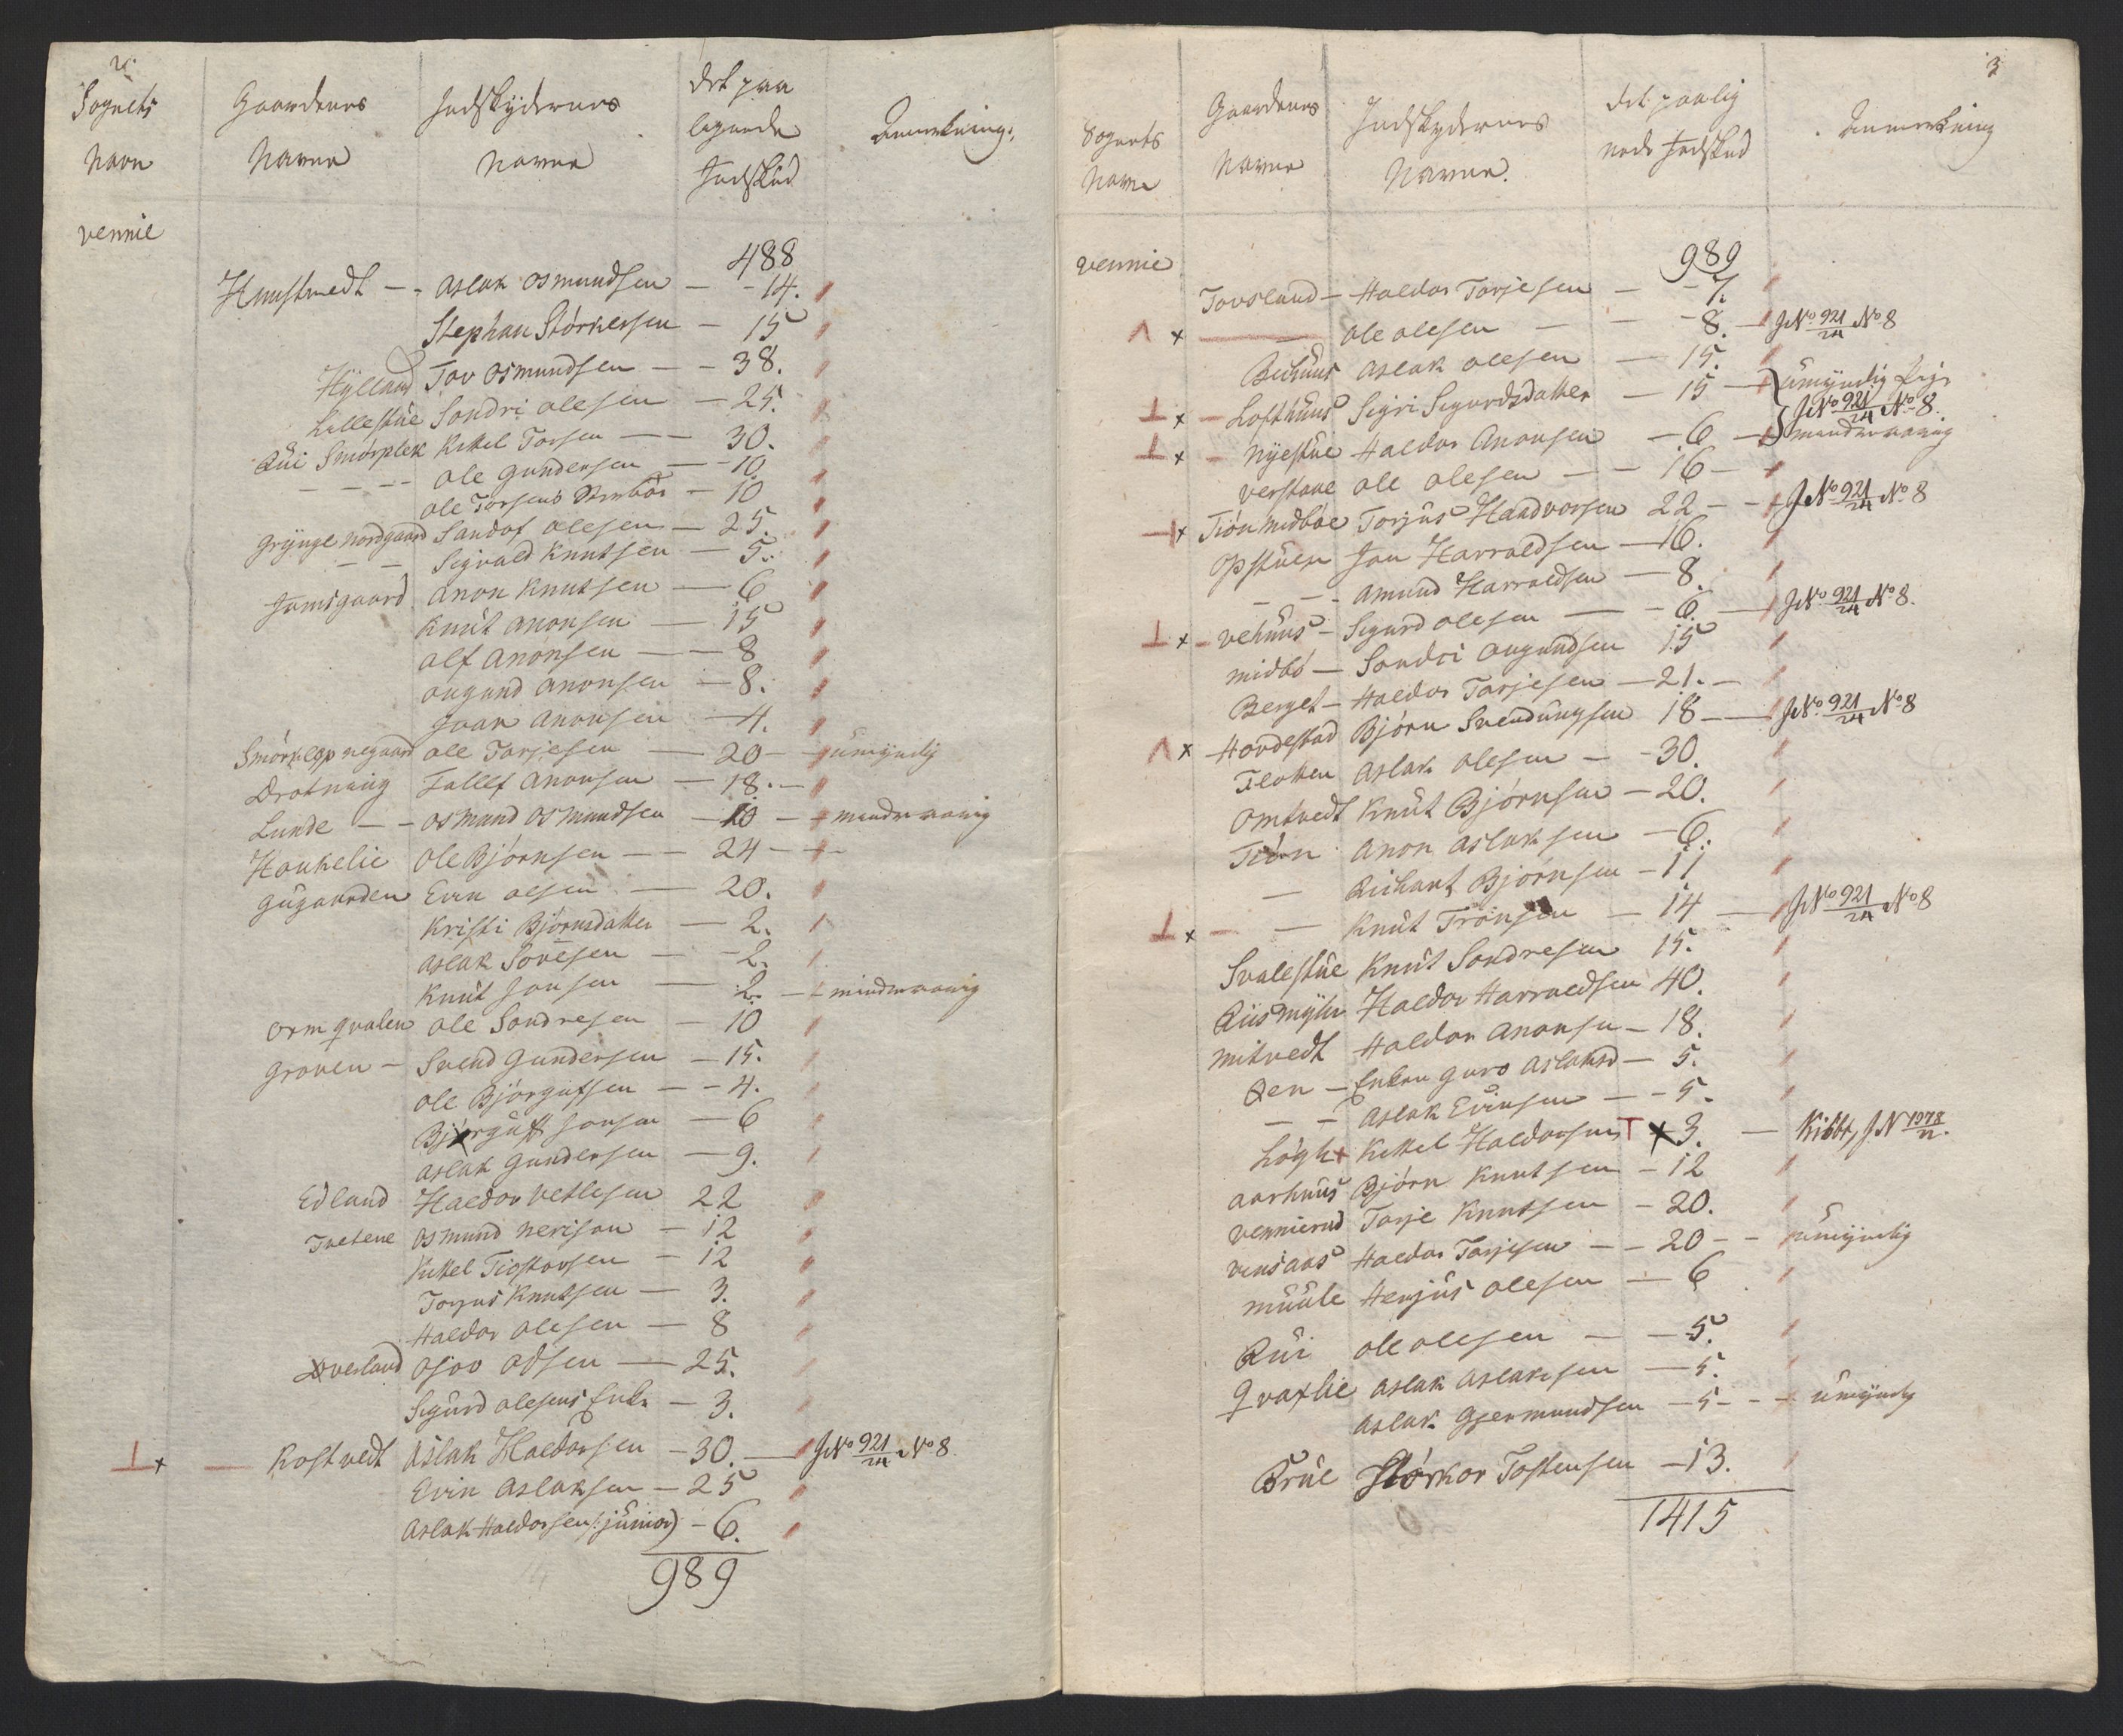 2.
Sognets Navn | Gaardenes Navne | Indskydernes Navne | det paa legende Indskud | Anmerkning.
vennie
488
Hunstvedt - - Aslak Osmundsen - - 14.
Stephan Störkersen - 15
Hÿlland Tov Osmundsen - - 38.
Lillestue Sondri Olesen - 25.
Rui Smörplek Kittel Torsen - - 30.
- - - - Ole Gundersen - - 10.
Ole Torsens - 10
Grÿnge nordgaard Sandof Olesen - 25.
- - Sigvald Knutsen - 5.
Jamsgaard Anon Knutsen - 6
Knut Anonsen - 15
Alf Anonsen - - 8
Augund Anonsen - 8.
Joan Anonsen - 4.
Smörklep negaard Ole Tarjesen - 20 - - umÿndig
Drotning Tallef Anonsen - 18. -
Lunde - - Osmund Osmundsen - 10 - - mindreaarig
Haukelie Ole Björnsen - - 24 - - -
Gugaarden Evin Olsen - 20.
Kristi Björnsdatter - 2.
Aslak Tovesen - - 2.
Knut Jonsen - 2. - - mindreaarig
Ormqvalen Ole Sondresen - 10
Groven - Svend Gundersen - 15.
Ole Björgufsen - - 4.
Björguff Jonsen - 6
Aslak Gundersen - 9.
Edland Haldor Vetlesen 22
Tvetene Osmund Nerison - 12
Kittel Tiostovsen - 12
Torjus Knutsen - 3.
Haldor Olesen - 8
Överland Osov Odsen - 25.
Sigurd Olesens Enke - 3.
⊥ x - Kostvedt Aslak Haldorsen - 30. - JNo 921/24 No 8
Evin Aslaksen - 25
Aslak Haldorsen (: junior) - 6.
989
3
Sognets Navn | Gaardenes Navne | Indskydernes Navne. | det paalig nede Indskud | Anmerkning
vennie
989
Tovsland - Haldor Tarjesen - - 7.
Λ x - - Ole Olesen - - - 8. - JNo 921/24 No 8
Buhuus Aslak Olesen - 15.
⊥ x - Lofthuus Sigri Sigurdsdatter - 15 - umÿndig Pige
JNo 921/24 No 8.
⊥ x - Nÿestue Haldor Anonsen - 6 - mindreaarig
Verstaue Ole Olesen - - 16 -
- x Tiön midböe Torjus Haadvorsen 22 - - JNo 921/24 No 8
Opstuen Jon Harraldsen - 16.
- - - Amund Harraldsen - 8.
⊥ x - Vehuus - Sigurd Olesen - - 6. - JNo 921/24 No 8.
Midbö - Sondri Augundsen 15
Berget - Haldor Tarjesen - 21. -
Λ x Hovdestad Björn Svendungsen 18 - - JNo 921/24 No 8
Flotten Aslak Olesen - - 30.
Omtvedt Knut Björnsen - 20.
Tiön Anon Aslaksen - 6.
- Rickart Björnsen - 11
⊥ x - - Knut Trönsen - 14 - JNo 921/24 No 8
Svalestue Knut Sondresen 15.
Riismÿhr Haldor Harraldsen 40.
Mitvedt Haldor Anonsen - 18.
Öen - Enken Guro Aslaksd - 5.
- - Aslak Evinsen - - 5.
Lögli + Kittel Haldorsen T x 3. - Kibbt, JN 1078/22.
Aarhuus Björn Knutsen - 12
Vennierud Tarje Knutsen - 20.
Vinsaas Haldor Tarjesen - - 20 - - umÿndig
Muule Herjus Olesen - 6
Rui Ole Olesen - - 5.
Qvaslie Aslak Aslaksen - 5.
Aslak Gjermundsen - 5 - - umÿndig
Brue Störkor Tostensen - 13.
1415